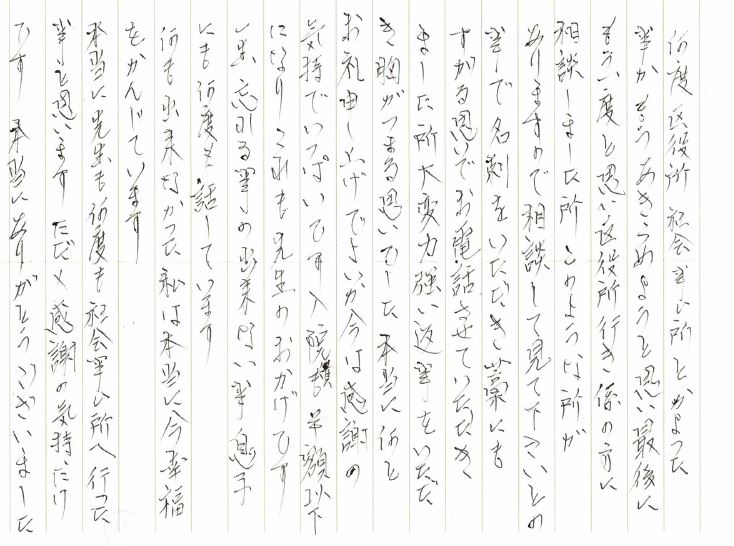 何度区役所 社会事ム所とかよった
事かもうあきらめようと思い最後に
もう一度と思い区役所行き係の方に
相談しました所 このような所が
ありますので相談して見て下さいとの
事で名刺をいただき藁にも
すがる思いでお電話させていただき
ました所大変力強い返事をいただ
き胸がつまる思いでした 本当に何と
お礼申し上げてよいか今は感謝の
気持でいっぱいです 入院費も半額以下
になりこれも先生のおかげです
一生忘れる事の出来ない事 息子
にも何度も話しています
何も出来なかった私は本当に今幸福
をかんじています
本当に先生も何度も社会事ム所へ行った
事と思います ただ〱感謝の気持だけ
です 本当にありがとうございました